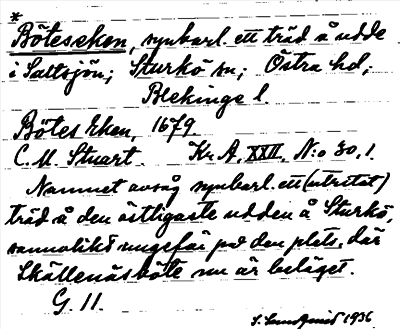 *
Böteseken, synbarl. ett träd å udde
i Saltsjön; Sturkö sn; Östra hd,
Blekinge l.
Bötes Eken, 1679.
C. M. Stuart. Kr. A. XXII. N:o 30, 1.
Namnet avsåg synbarl. ett (utritat)
träd å den östligaste udden å Sturkö,
sannolikt ungefär på den plats, där
Skällenäsböte nu är beläget.
G 11.
S. Lundqvist 1936